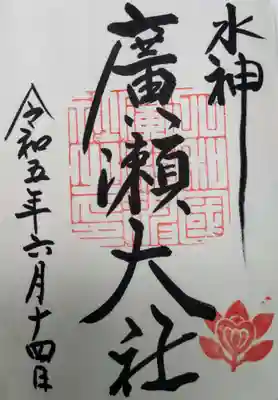 水神
廣瀬大社
令和五年六月十四日